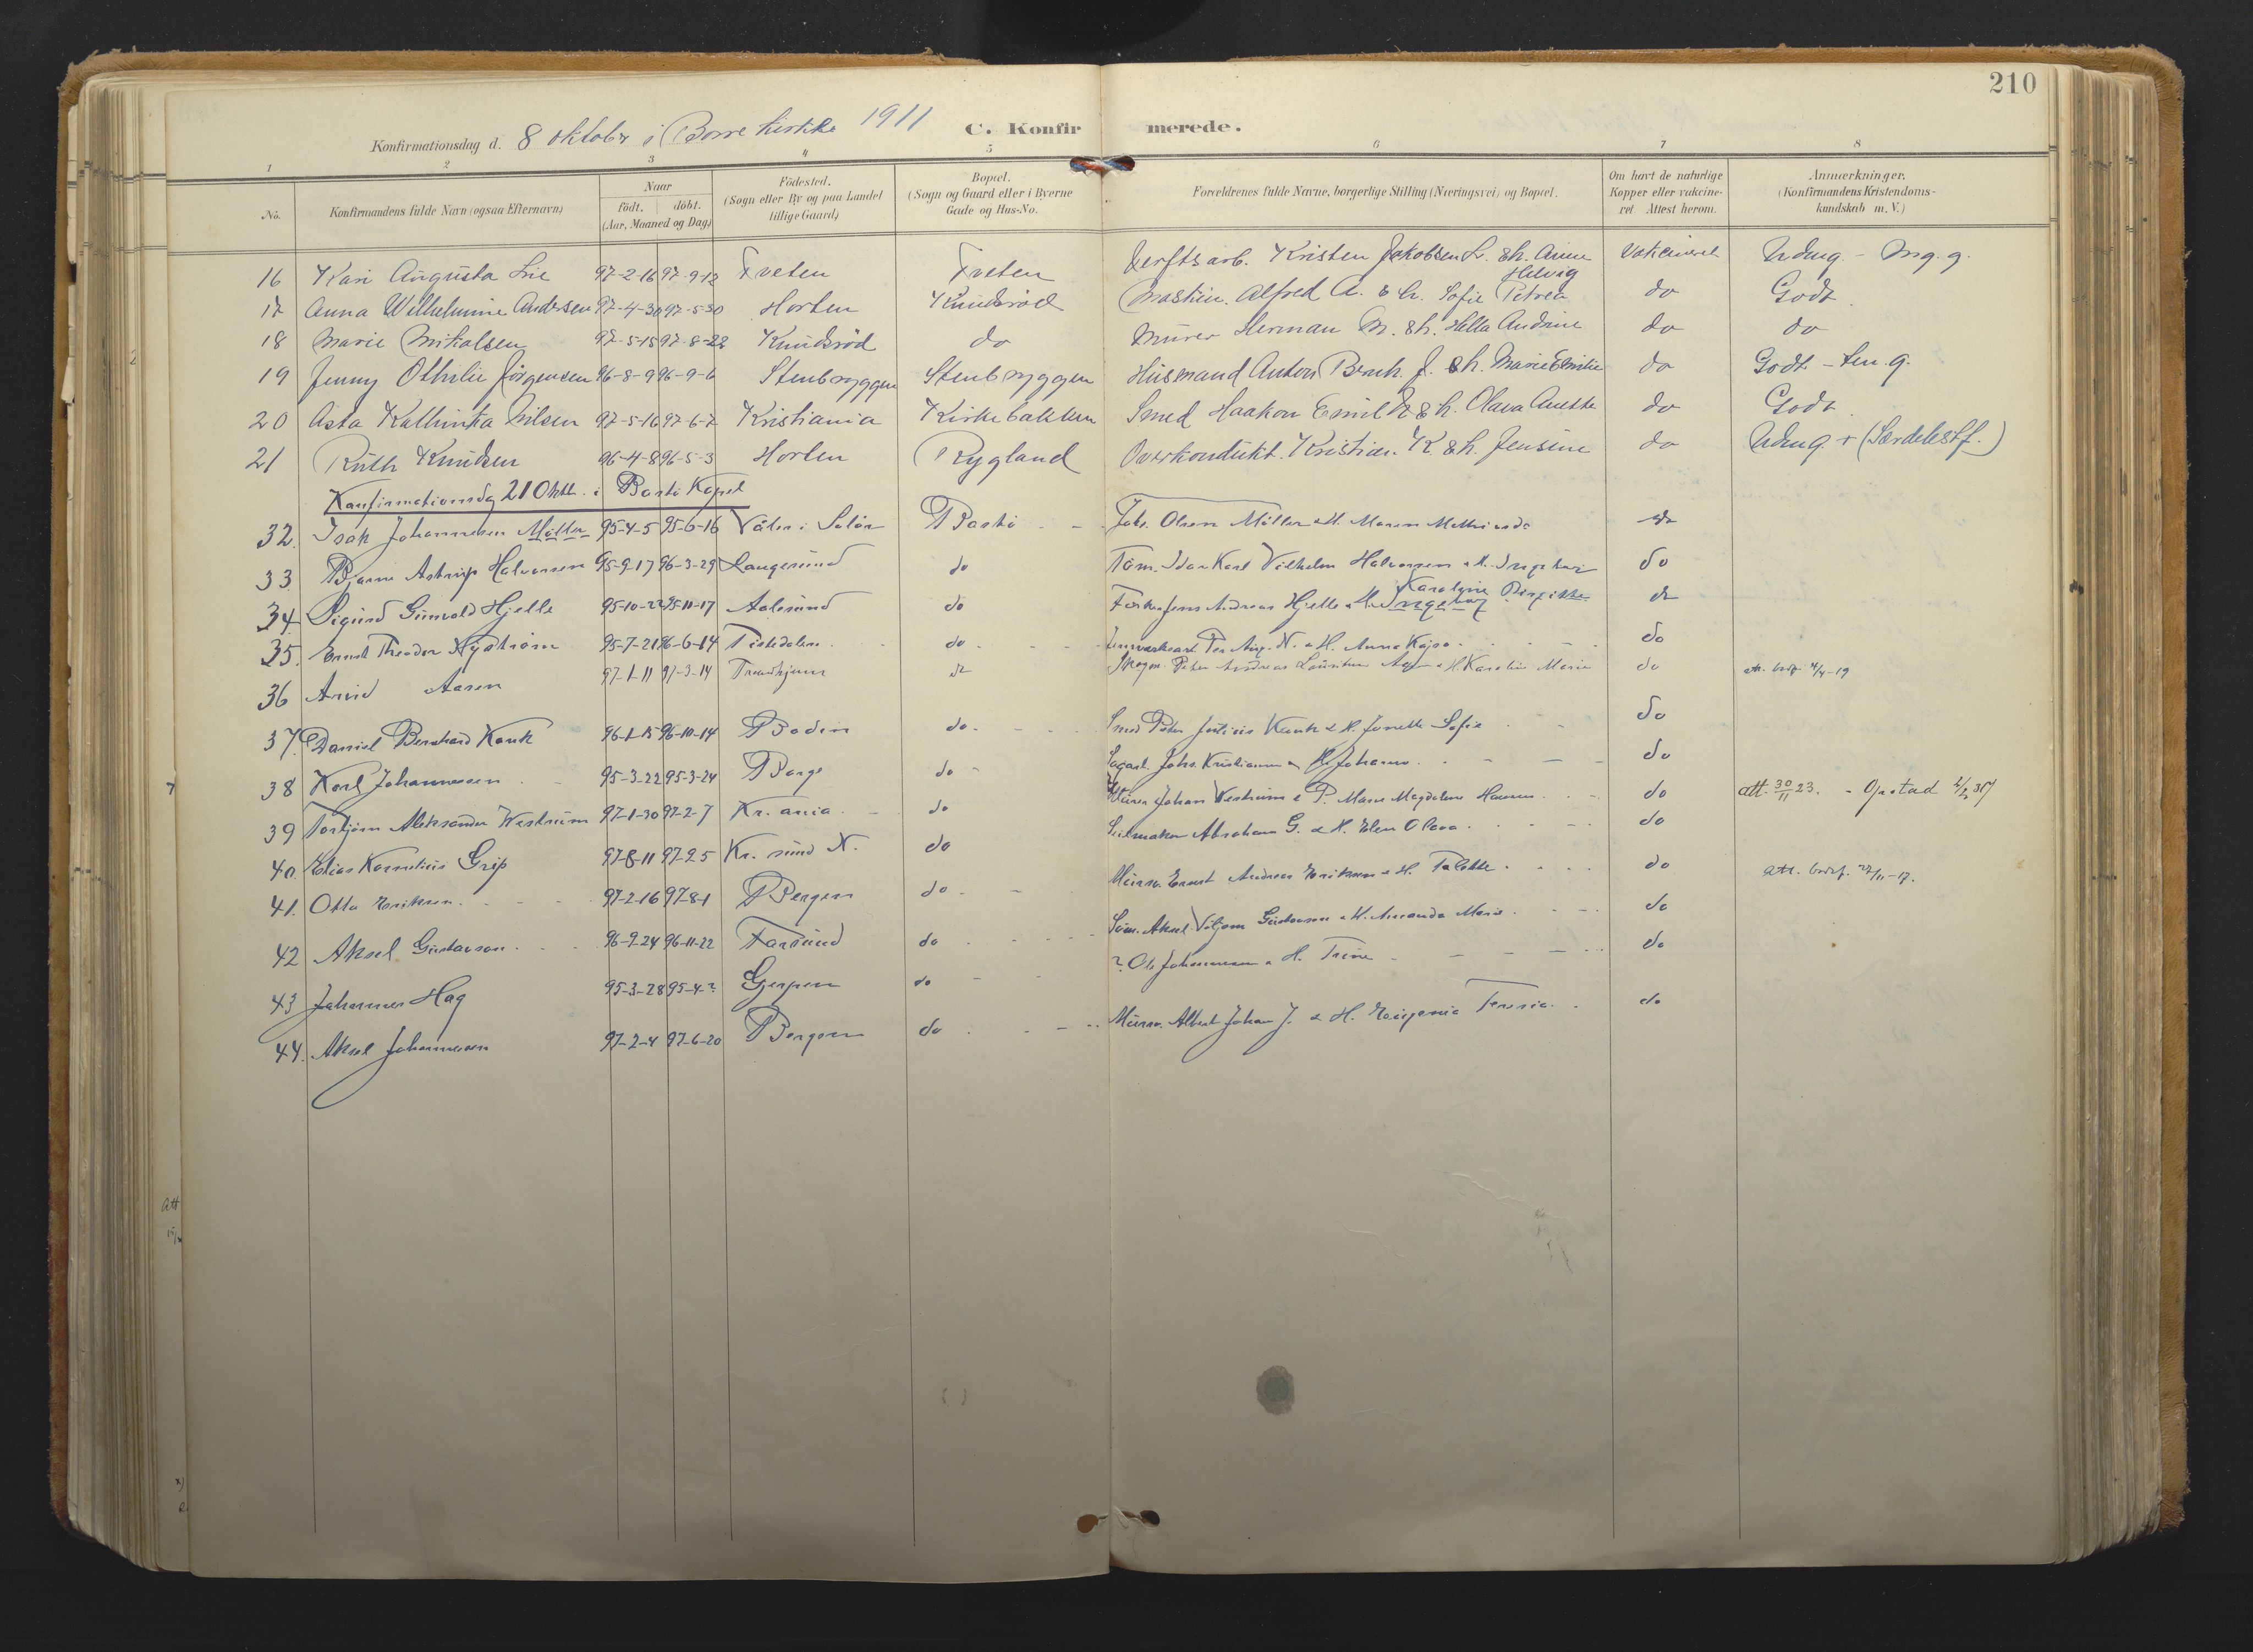 210
Konfirmationsdag d. 8 oktober i Borre kirke 1911 C. Konfirmerede.
1 2 3 4 5 6 7 8
No. Konfirmandens fulde Navn (ogsaa Efternavn) Naar født. døbt. (Aar, Maaned og Dag) Fødested. (Sogn eller By og paa Landet tillige Gaard) Bopæl. (Sogn og Gaard eller i Byerne Gade og Hus-No. Forældrenes fulde Navne, borgerlige Stilling (Næringsvei) og Bopæl. Om havt de naturlige Kopper eller vakcineret Attest herom. Anmærkninger. (Konfirmandens Kristendomskundskab m. V.)
16 Kari Augusta Lie 97-2-16 97-9-12 Tveten Tveten Verftsarb. Kristen Jakobsen L. & h. Anne Helvig Vakcineret Udmg. - mg. g.
17 Anna Wilhelmine Andersen 97-4-30 97-5-30 Horten Knudsrød Maskin. Alfred A. & h. Sofie Petrea do Godt.
18 Marie Mikalsen 97-5-15 97-8-22 Knudsrød do Murer Herman M. & h. Hella Andrine do do
19 Jenny Othilie Jørgensen 96-8-9 96-9-6 Stenbryggen Stenbryggen Husmand Anton Bernh. J. & h. Marie Emilie do Godt - tem. g.
20 Asta Kathinka Nilsen 97-5-16 97-6-7 Kristiania Kirkebakken Smed Haakon Emil N & h. Olava Anette do Godt.
21 Ruth Knudsen 96-4-8 96-5-3 Horten Rygland Overkondukt. Kristian K. & h. Jensine do Udmg. + (Særdelestf.)
Konfirmationsdg 21 Oktb. i Bastø Kapel
32. Isak Johannesen Møller 95-4-5 95-6-16 Våler i Solør Bastø Joh. Olsen Møller & H. Maren do
33. Bjarne Astrup Halvorsen 95-9-17 96-3-29 Langesund do Tøm. Karl Vilhelm Halvorsen & H. Ingeborg do
34. Sigurd Gunvald Hjelle 95-10-22 95-11-17 Aalesund do Jens Andreas Hjelle & H. Ingeborg Karoline Birgitte do
35. Ernst Theodor Nystrøm 95-7-21 96-6-14 Tistedalen do Per Aug. N. & H. Anna Kajsa do
36 Arvid Aasen 97-1-11 97-3-14 Trondhjem do Peter Andreas Lauritsen & H. Karoline Marie do att. 4/4-19
37. Daniel Bernhard Kank 96-1-15 96-10-14 Bodin do Smed Peter Julius Kank & H. Jonette Sofie do
38 Karl Johannesen 95-3-22 95-3-24 Borge do Sagarb. Johs. Kristiansen & H. Johanne do
39 Torbjørn Aleksander Westrum 97-1-30 97-2-7 Kr. ania do Murer Johan Westrum & P. Marie Magdalene Hansen do att. 30/11 23. - Opstad
40. Elias Kornelius Grip 97-8-11 97-9-5 Kr. sund N. do Seilmaker Abraham G. & H. Elen Olava do
41. Otto Eriksen 97-2-16 97-8-1 Bergen do Ernst Andreas Eriksen & H. Talette do att. 22/11-17.
42 Aksel Gustavson 96-9-24 96-11-22 Farsund do Søm. Aksel Viljam Gustavson & H. Amanda Marie do
43 Johannes Hag 95-3-28 95-4-? Gjerpen do ? Ole Johannesen & H. Trine do
44. Aksel Johannesen 97-2-4 97-6-20 Bergen do Albert Johan J. & H. Eugenie Teresia do